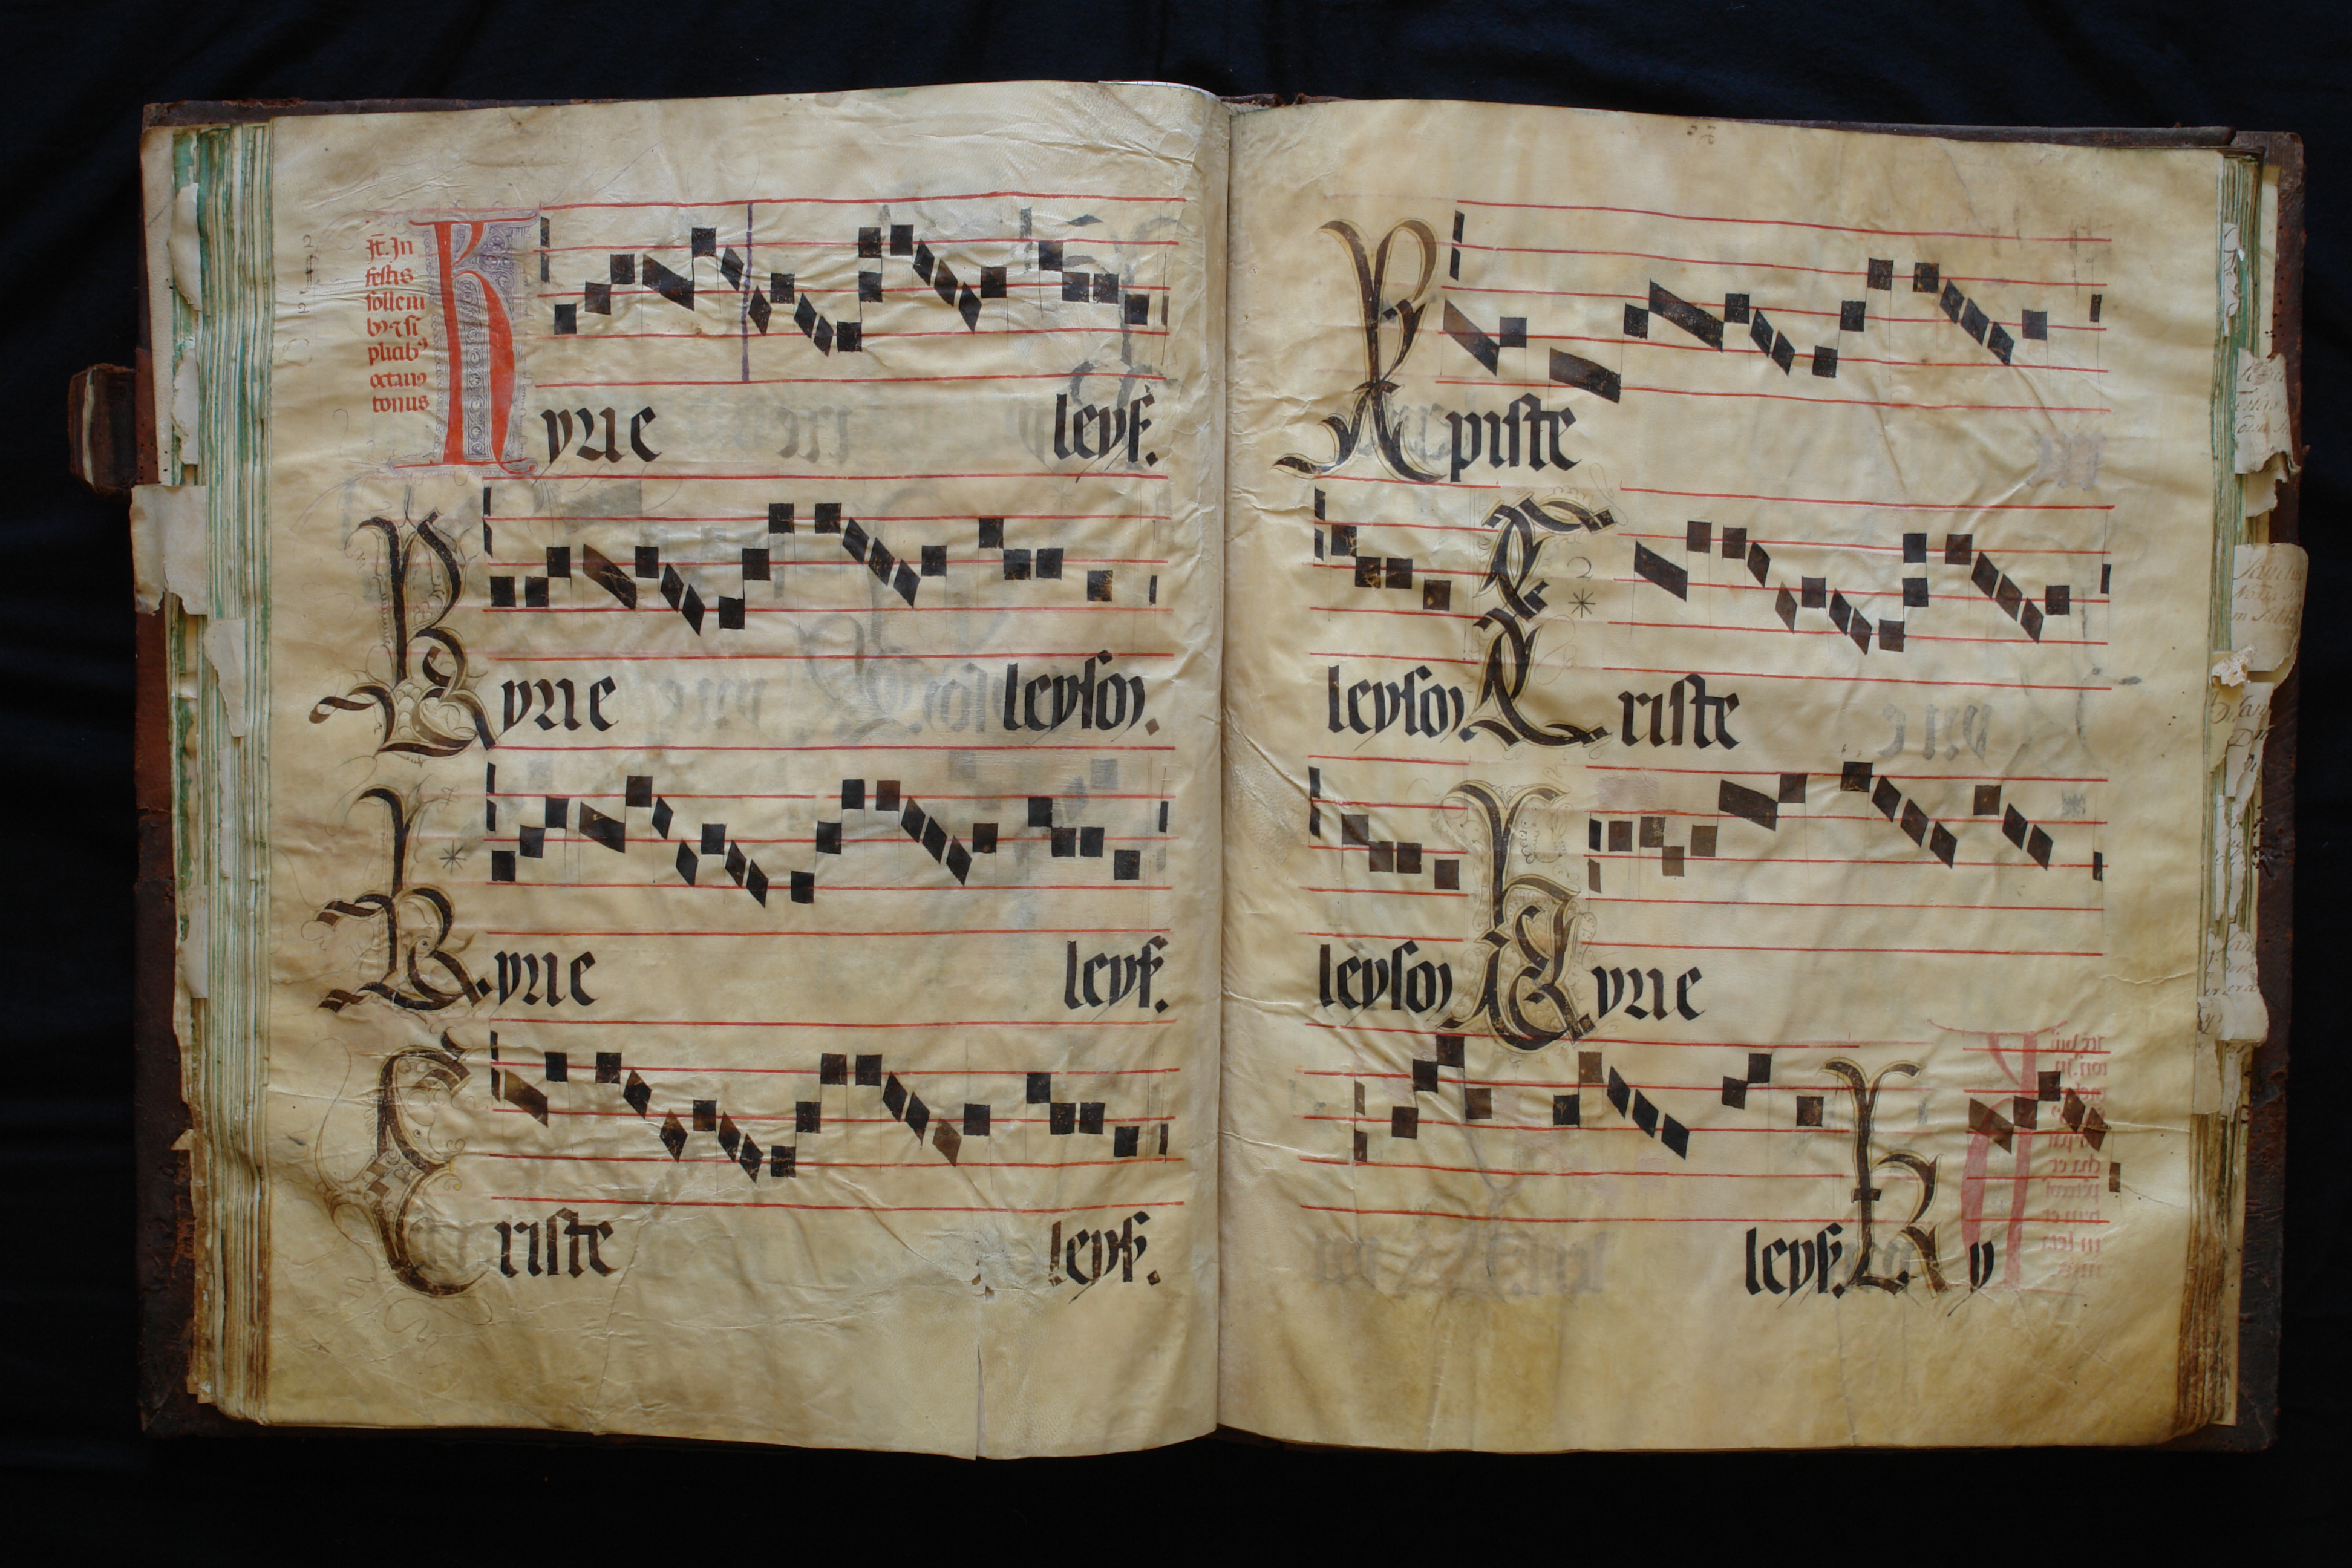 Jt. Jn
festis
sollem
byz si
plicib9
octauo
tonus
Kyrie leys.
Kyrie leyson.
Kyrie leys.
Criste leys.
Xpiste
leyson Criste
leyson Kyrie
leys. Ky